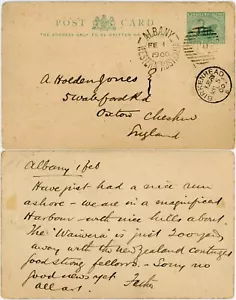 POST CARD
ALBANY
FE 1
1900
WESTERN AUSTRALIA
A Holden Jones
5 Waterford Rd
Oxton Cheshire
England
BIRKENHEAD
Albany 1 feb
Have just had a nice run
ashore - we are in a magnificent
Harbour - with nice hills about.
The "Waiwera" is just 200 yds
away with the new Zealand contingent
good strong fellows - Sorry no
good news yet.
all art.